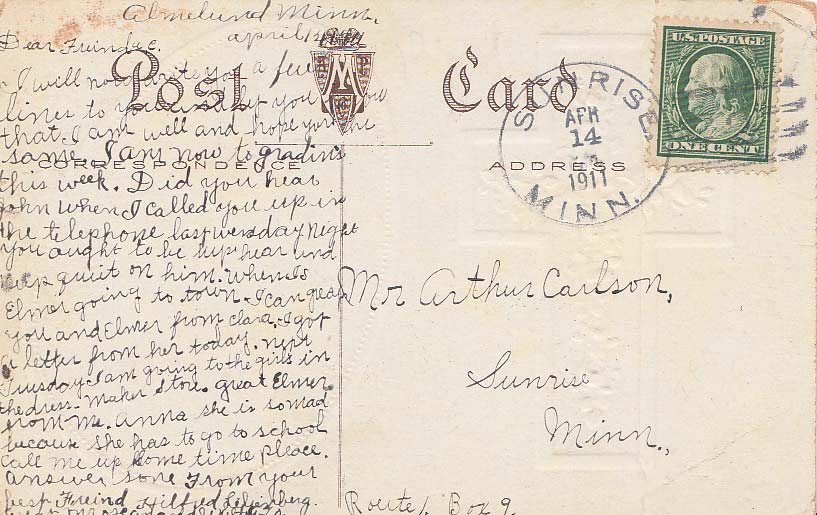 Almelund Minn.
april 12
Dear Freindye.
I will now write you a few
lines to you and let you know
that I am well and hope you the
same. I am now to gradin's
this week. Did you hear
John when I called you up in
the telephone last wensday night
you aught to be up hear und
keep quiit on him. When Is
Elmer going to town. I can great
you and Elmer from Clara. I got
a letter from her today. next
Tuesday I am going to the girls in
the dress-maker store. great Elmer
from me. Anna she is so mad
because she has to go to school
Call me up some time pleace.
answer sone From your
best Freind Hilfred
Post Card
CORRESPONDENCE
ADDRESS
SUNRISE,
APR
14
1911
MINN.
U.S. POSTAGE
ONE CENT
Mr Arthur Carlson,
Sunrise
Minn.,
Route 1. Box 9